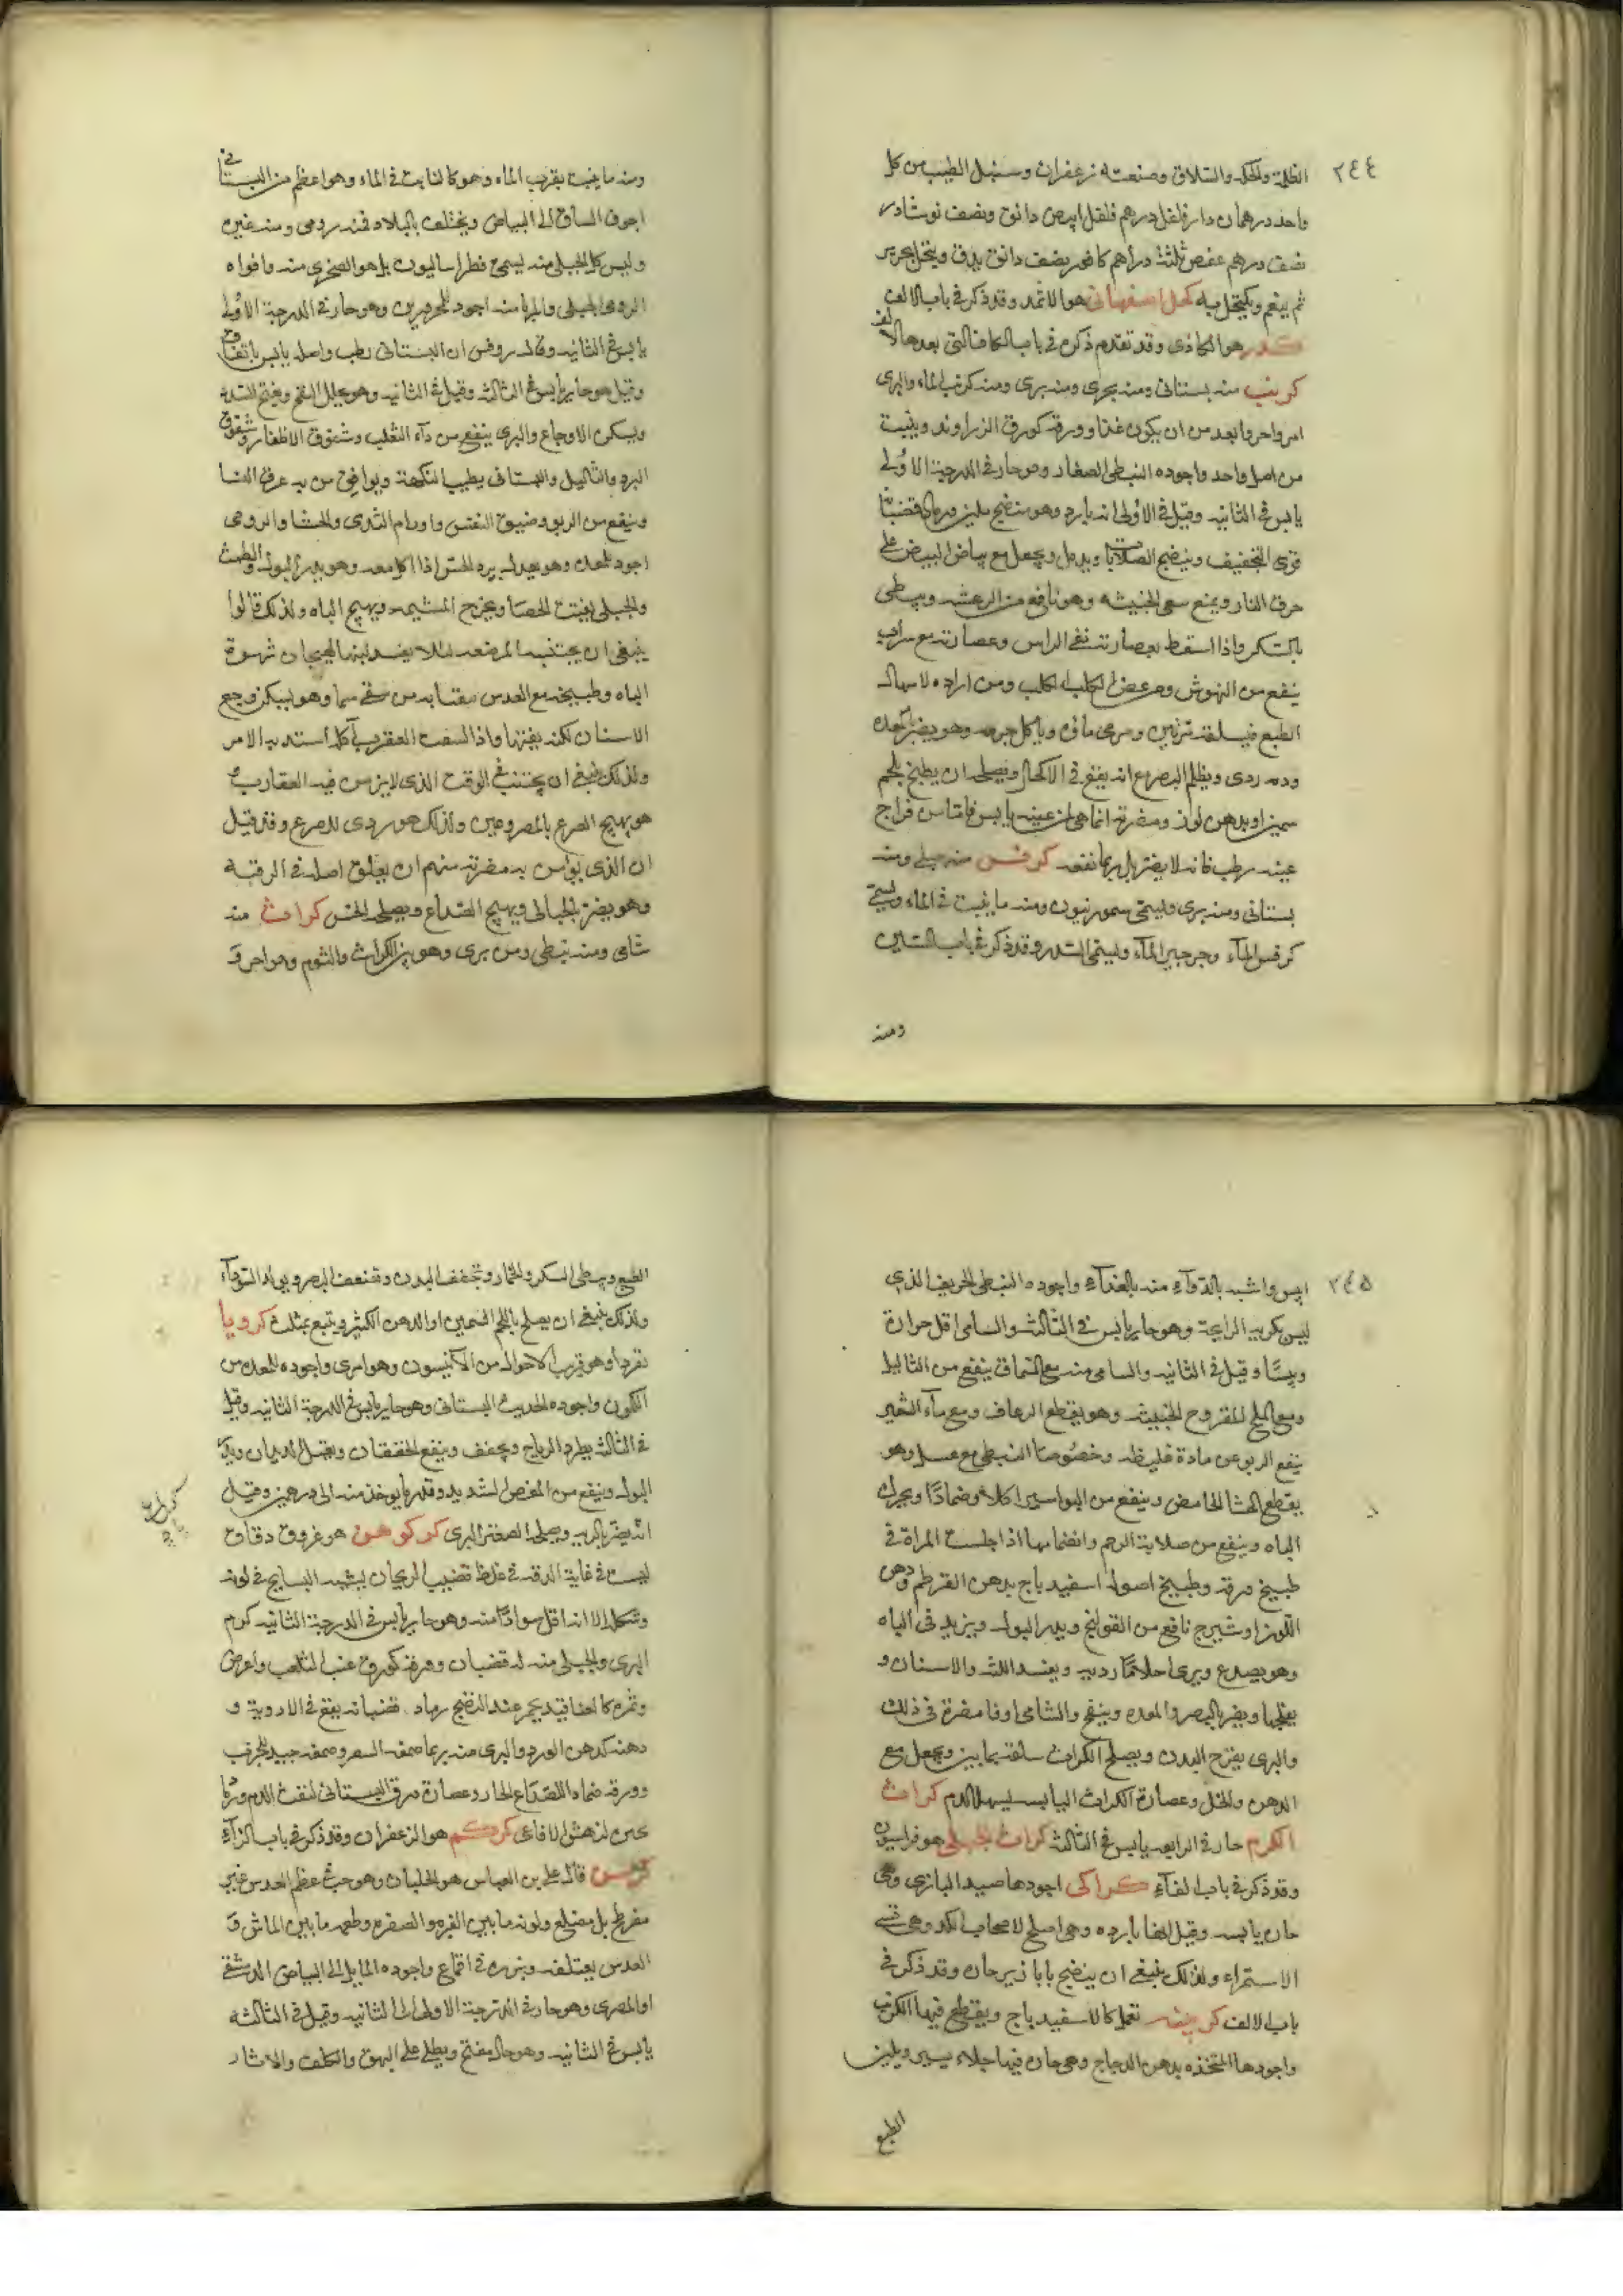 ٢٤٤
الظلمة والحكة والسلاق وصنعته زعفران وسنبل الطيب من كل
واحد درهمان دار فلفل درهم فلفل ابيض دانق ونصف نوشادر
نصف درهم عفص ثلثة دراهم كافور نصف دانق يدق وينخل بحرير
ثم ينعم ويكتحل به كحل اصفهانى هو الاثمد وقد ذكر فى باب الالف
كدر هو الكاذى وقد تقدم ذكره فى باب الكاف التى بعدها الالف
كرنب منه بستانى ومنه بحرى ومنه برى ومنه كرنب الماء والبرى
امر واحر وابعد من ان يكون غذا وورقه كورق الزراوند وينبت
من اصل واحد واجوده النبطى الصغار وهو حار فى الدرجة الاولى
يابس فى الثانيه وقيل فى الاولى انه بارد وهو منضج ملين ورماد قضبانه
قوى التجفيف وينضج الصلابات ويدمل ويجعل مع بياض البيض على
حرق النار ويمنع سعى الخبيثه وهو نافع من الرعشه ويبطى
بالسكر واذا استعط بعصارته نقى الراس وعصارته مع شراب
ينفع من النهوش ومن عض الكلب الكلب ومن اراده لاسهال
الطبع فيسلقه مرتين ويرمى ماؤه وياكل جرمه وهو يضر بالمعده
ودمه ردى ويظلم البصر مع انه يقع فى الاكحال ويصلحه ان يطبخ بلحم
سمين او بدهن لوز ومضرته انما هى لمن عينيه يابس فاما من مزاج
عينه رطب فانه لا يضر بل ربما نفعه كرفس منه جبلى ومنه
بستانى ومنه برى ويسمى سمورنيون ومنه ما ينبت فى الماء ويسمى
كرفس الماء وجرجير الماء ويسمى السدر وقد ذكر فى باب السين
ومنه
ومنه ما ينبت بقرب الماء وهو كالنابت فى الماء وهو اعظم من البستانى
اجوف الساق الى البياض ويختلف بالبلاد فمنه رومى ومنه غيره
وليس كل الجبلى منه يسمى فطراساليون بل هو الصخرى منه وافواه
الرومى الجبلى والمربا منه اجود للمحرورين وهو حار فى الدرجة الاولى
يابس فى الثانيه وقال روفس ان البستانى رطب واصله يابس باتفاق
وقيل هو حار يابس فى الثالثه وقيل فى الثانيه وهو يحلل النفخ ويفتح السدد
ويسكن الاوجاع والبرى ينفع من داء الثعلب وشقوق الاظفار وشقوق
البرد والثاليل والبستانى يطيب النكهة ويوافق من به عرق النسا
وينفع من الربو وضيق النفس واورام الثدى والحشا والرومى
اجود للمعده وهو يعدل برد الخس اذا اكل معه وهو يدر البول والطمث
والجبلى يفتت الحصاة ويخرج المشيمه ويهيج الباه ولذلك قالوا
ينبغى ان يجتنبه المرضعه لئلا يفسد لبنها لهيجان شهوة
الباه وطبيخه مع العدس يتقيا به من سقى سما وهو يسكن وجع
الاسنان لكنه يفتتها واذا لسعت العقرب آكله استد به الامر
ولذلك ينبغى ان يجتنب فى الوقت الذى لا يؤمن فيه العقارب و
هو يهيج الصرع بالمصروعين ولذلك هو ردى للصرع وقد قيل
ان الذى يؤمن به مضرته منهم ان يعلق اصله فى الرقبه
وهو يضر بالحبالى ويهيج الصداع ويصلحه الخس كراث منه
شامى ومنه نبطى ومن برى وهو بين الكراث والثوم وهو احر و
٢٤٥
ايبس واشبه بالدواء منه بالغذاء واجوده النبطى الحريف الذى
ليس بكريه الرايحة وهو حار يابس فى الثالثه والشامى اقل حرارة
ويبسًا وقيل فى الثانيه والشامى منه مع السماق ينفع من الثاليل
ومع الملح للقروح الخبيثه وهو يقطع الرعاف ومع ماء الشعير
ينفع الربو عن مادة غليظه وخصوصا النبطى مع عسل وهو
يقطع الجشا الحامض وينفع من البواسير اكلا وضمادا ويحرك
الباه وينفع من صلابة الرحم وانضمامها اذا جلست المراة فى
طبيخ ورقه وطبيخ اصوله اسفيد باج بدهن القرطم ودهن
اللوز او شيرج نافع من القولنج ويدر البول ويزيد فى الباه
وهو يصدع ويرى احلامًا رديه ويفسد اللثه والاسنان و
يقلعها ويضر بالبصر والمعده وينفخ والشامى اوفا مضرة فى ذلك
والبرى يقرح البدن ويصلح الكراث سلقه بماين ويجعل مع
الدهن والخل وعصارة الكراث اليابسه يسهل الدم كراث
الكرم حار فى الرابعه يابس فى الثالثه كراث جبلى هو فراسيون
وقد ذكر فى باب الفاء كراكى اجودها صيد البازى وهى
حاره يابسه وقيل انها بارده وهى اصلح لاصحاب الكد وهى عسره
الاستمراء ولذلك ينبغى ان ينضج بابازير حاره وقد ذكر فى
باب الالف كرنبيه تعمل كالاسفيد باج ويقطع فيها الكرنب
واجودها المتخذه بدهن الدجاج وهى حاره فيها جلاء يسير ويلين
الطبع
الطبع ويبطى السكر والخمار وتجفف البدن وتضعف البصر ويولد السوداء
ولذلك ينبغى ان يصلح باللحم السمين او الدهن الكثير ويتبع بمثلث كرويا
نقرد وهو قريب الاحوال من الانيسون وهو امرى واجوده للمعده من
الكمون واجوده الحديث البستانى وهو حار يابس فى الدرجة الثانيه وقيل
فى الثالثه يطرد الرياح ويجفف وينفع الخفقان ويقتل الديدان ويدر
البول وينفع من المغص الشديد وقدر ما يوخذ منه الى درهمين وقيل
انه يضر بالريه ويصلحه الصعتر البرى كركوهن هو عروق دقاق
ليست فى غاية الدقه فى غلظ قضيب الريحان يشبه البسايج فى لونه
وشكله الا انه اقل سوادًا منه وهو حار يابس فى الدرجة الثانيه كرم
البرى والجبلى منه له قضبان وورقه كورق عنب الثعلب واعرض
وثمره كالعناقيد يحمر عند النضج رماد قضبانه يقع فى الادوية و
دهنه كدهن الورد والبرى منه بريا صمغه السعر وصمغه جيد للجرب
وورقه ضماد للصداع الحار وعصارة ورق البستانى لنفث الدم ورماد
من نهش الافاعى كركم هو الزعفران وقد ذكر فى باب الزاء
كرسنه قال على بن العباس هو الجلبان وهو حب عظم العدس غير
مفرطح بل مضلع ولونه ما بين الغبره والصفره وطعمه ما بين الماش و
العدس يعتلفه وبزره فى اقماع واجوده المايل الى البياض الدمشقى
او المصرى وهو حار فى الدرجة الاولى الى الثانيه وقيل فى الثالثه
يابس فى الثانيه وهو جال مفتح ويطلى على البهق والكلف والاثار